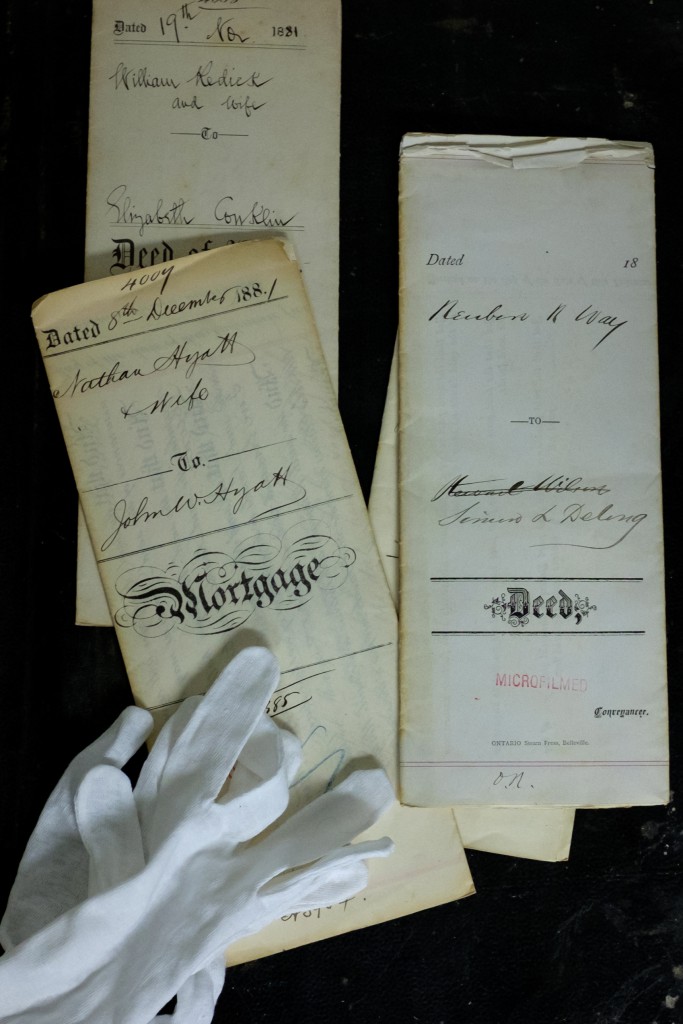 Dated 19th Nov 1881
William Redick
and Wife
To
Elizabeth Conklin
Deed of
4009
Dated 8th December 1881
Nathan Hyatt
& Wife
To.
John W. Hyatt
Mortgage
Dated 18
Reuben R Way
TO
Wilson
Simon L Delong
Deed,
MICROFILMED
Conveyancer.
ONTARIO Steam Press, Belleville.
O.R.